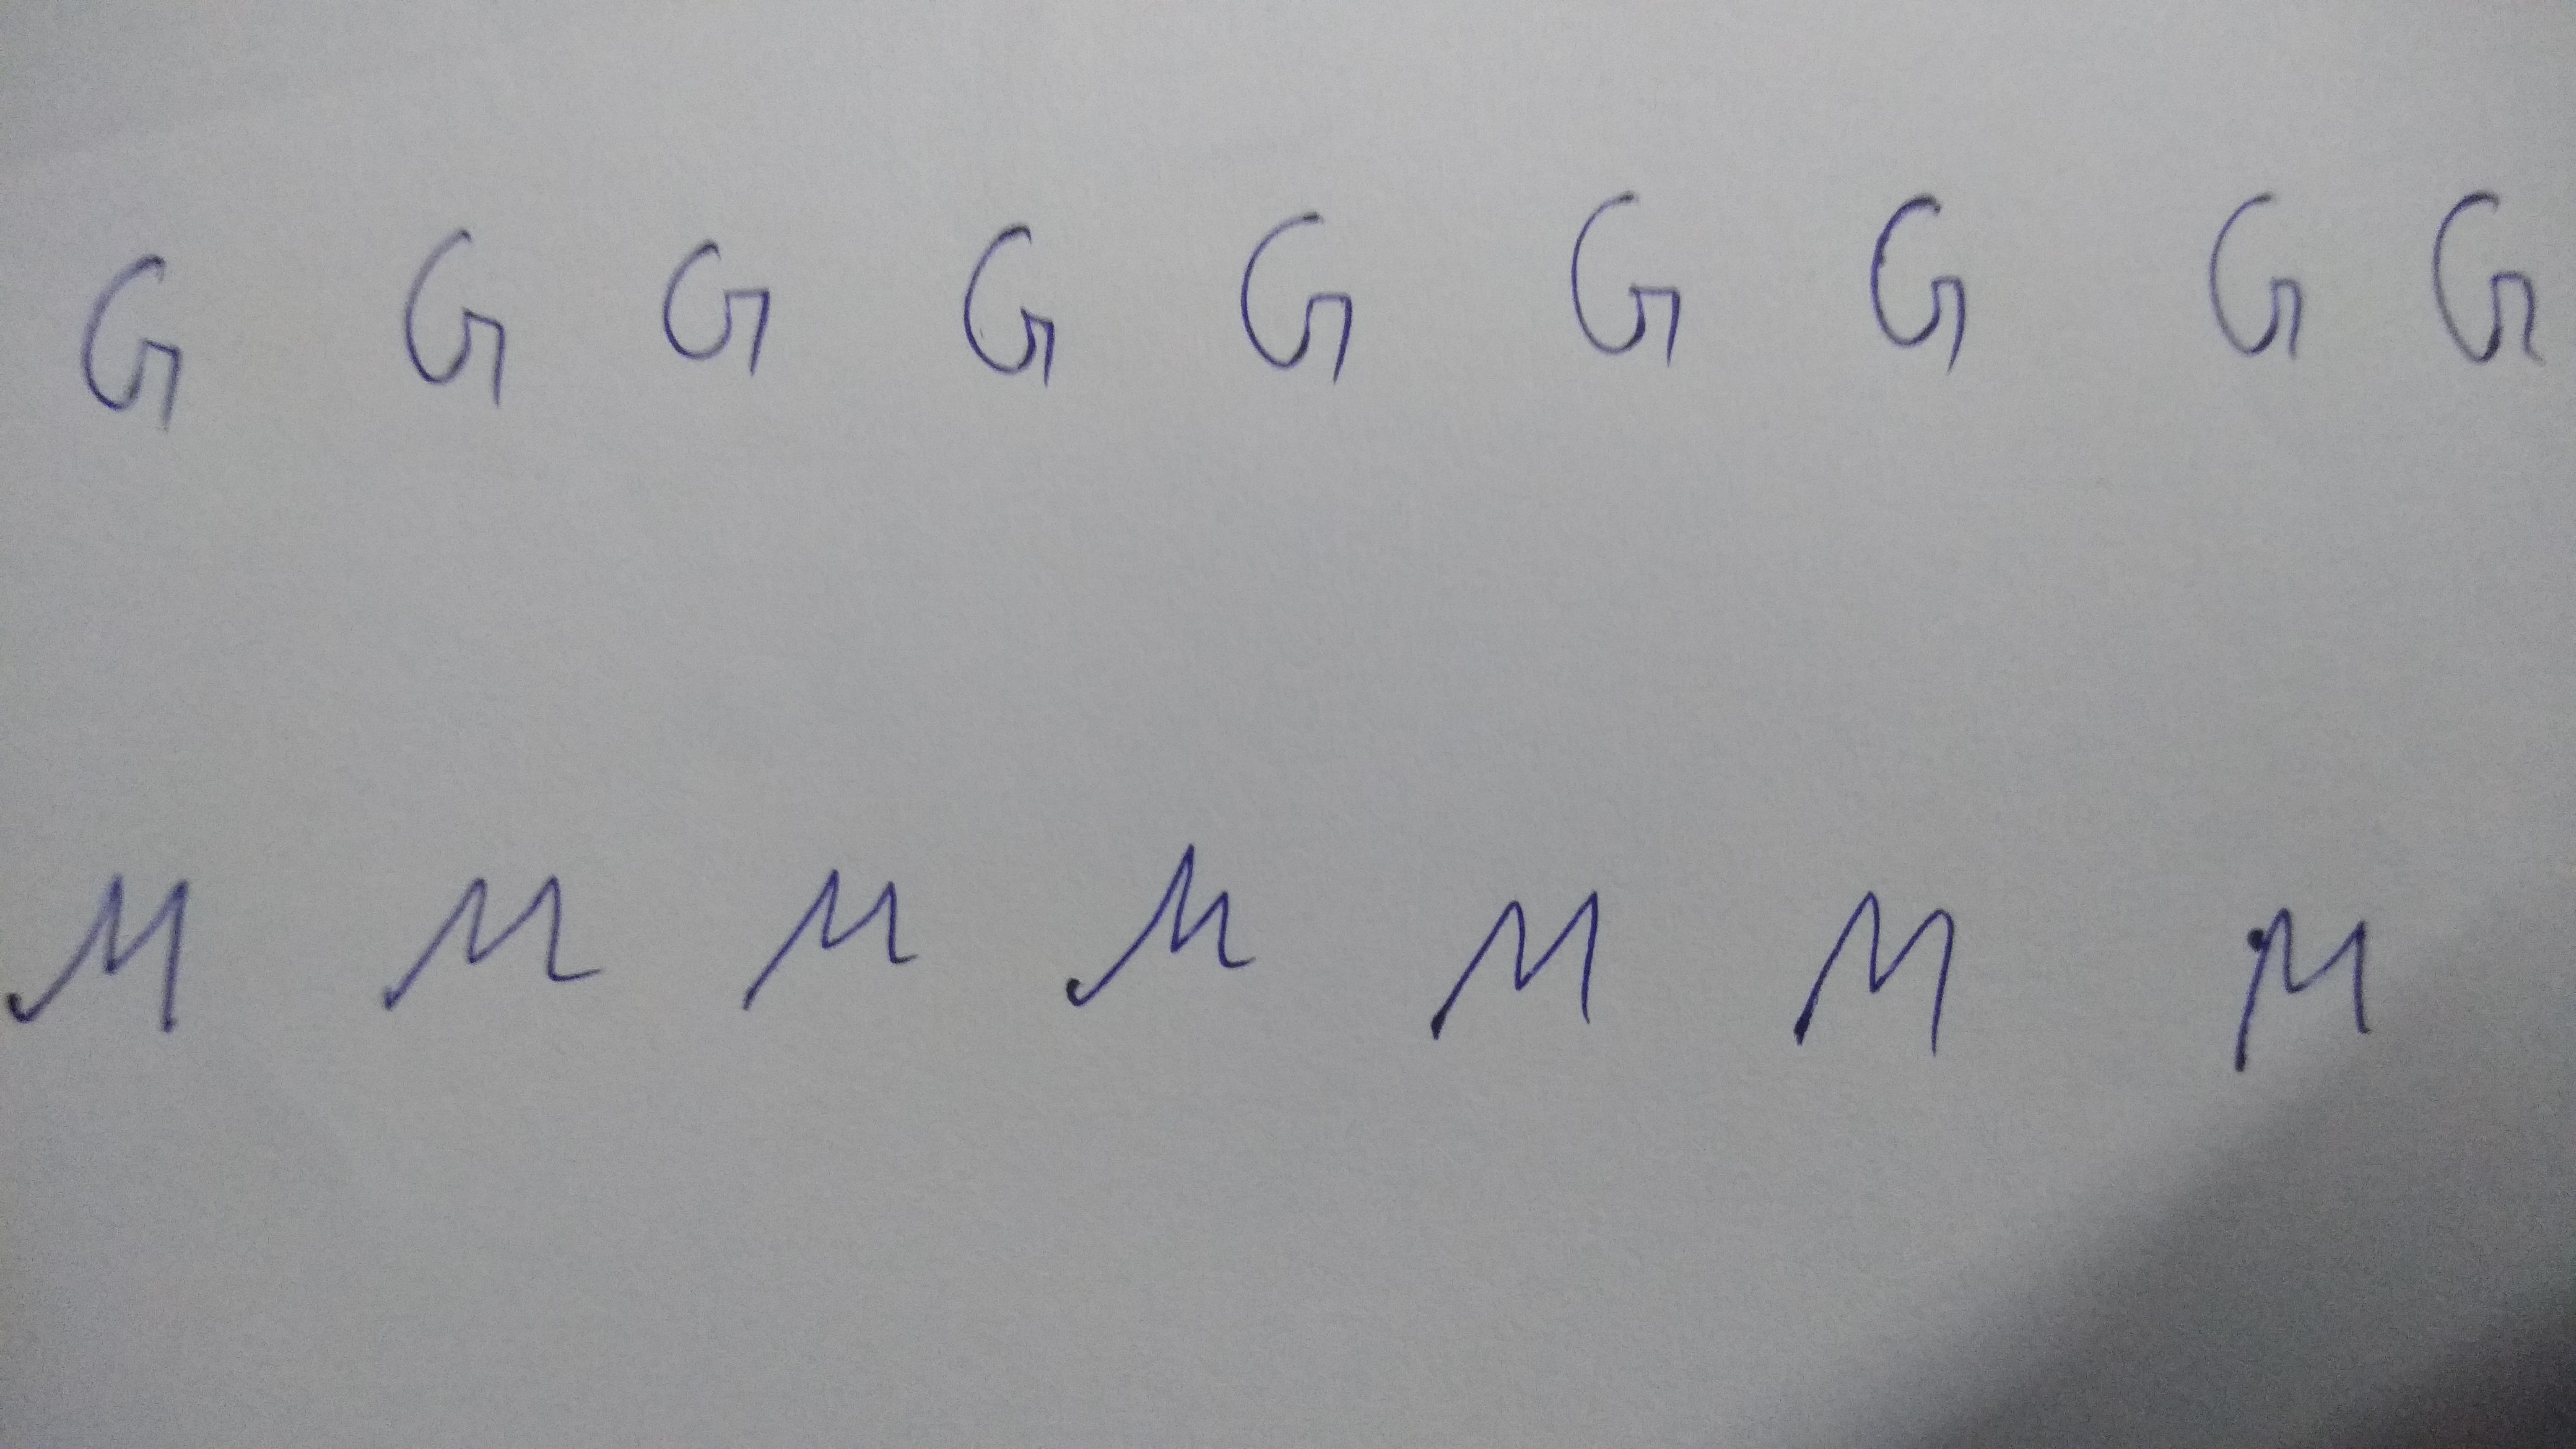 G G G G G G G G G
M M M M M M M